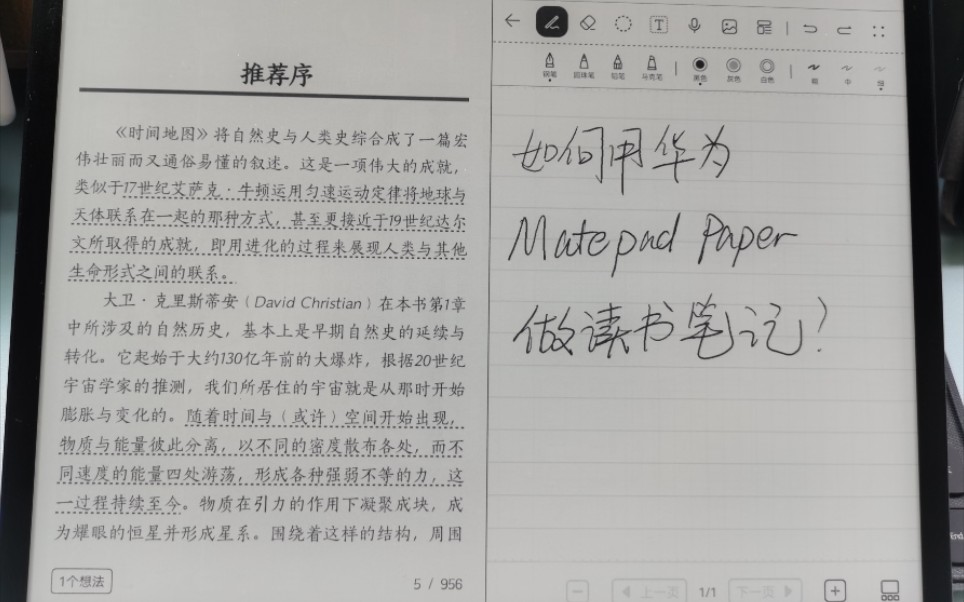 推荐序
《时间地图》将自然史与人类史综合成了一篇宏
伟壮丽而又通俗易懂的叙述。这是一项伟大的成就，
类似于17世纪艾萨克·牛顿运用匀速运动定律将地球与
天体联系在一起的那种方式，甚至更接近于19世纪达尔
文所取得的成就，即用进化的过程来展现人类与其他
生命形式之间的联系。
大卫·克里斯蒂安（David Christian）在本书第1章
中所涉及的自然历史，基本上是早期自然史的延续与
转化。它起始于大约130亿年前的大爆炸，根据20世纪
宇宙学家的推测，我们所居住的宇宙就是从那时开始
膨胀与变化的。随着时间与（或许）空间开始出现，
物质与能量彼此分离，以不同的密度散布各处，而不
同速度的能量四处游荡，形成各种强弱不等的力，这
一过程持续至今。物质在引力的作用下凝聚成块，成
为耀眼的恒星并形成星系。围绕着这样的结构，周围
1个想法
5 / 956
T
钢笔 圆珠笔 铅笔 马克笔 黑色 灰色 白色 粗 中 细
如何用华为
Matepad Paper
做读书笔记？
上一页 1/1 下一页